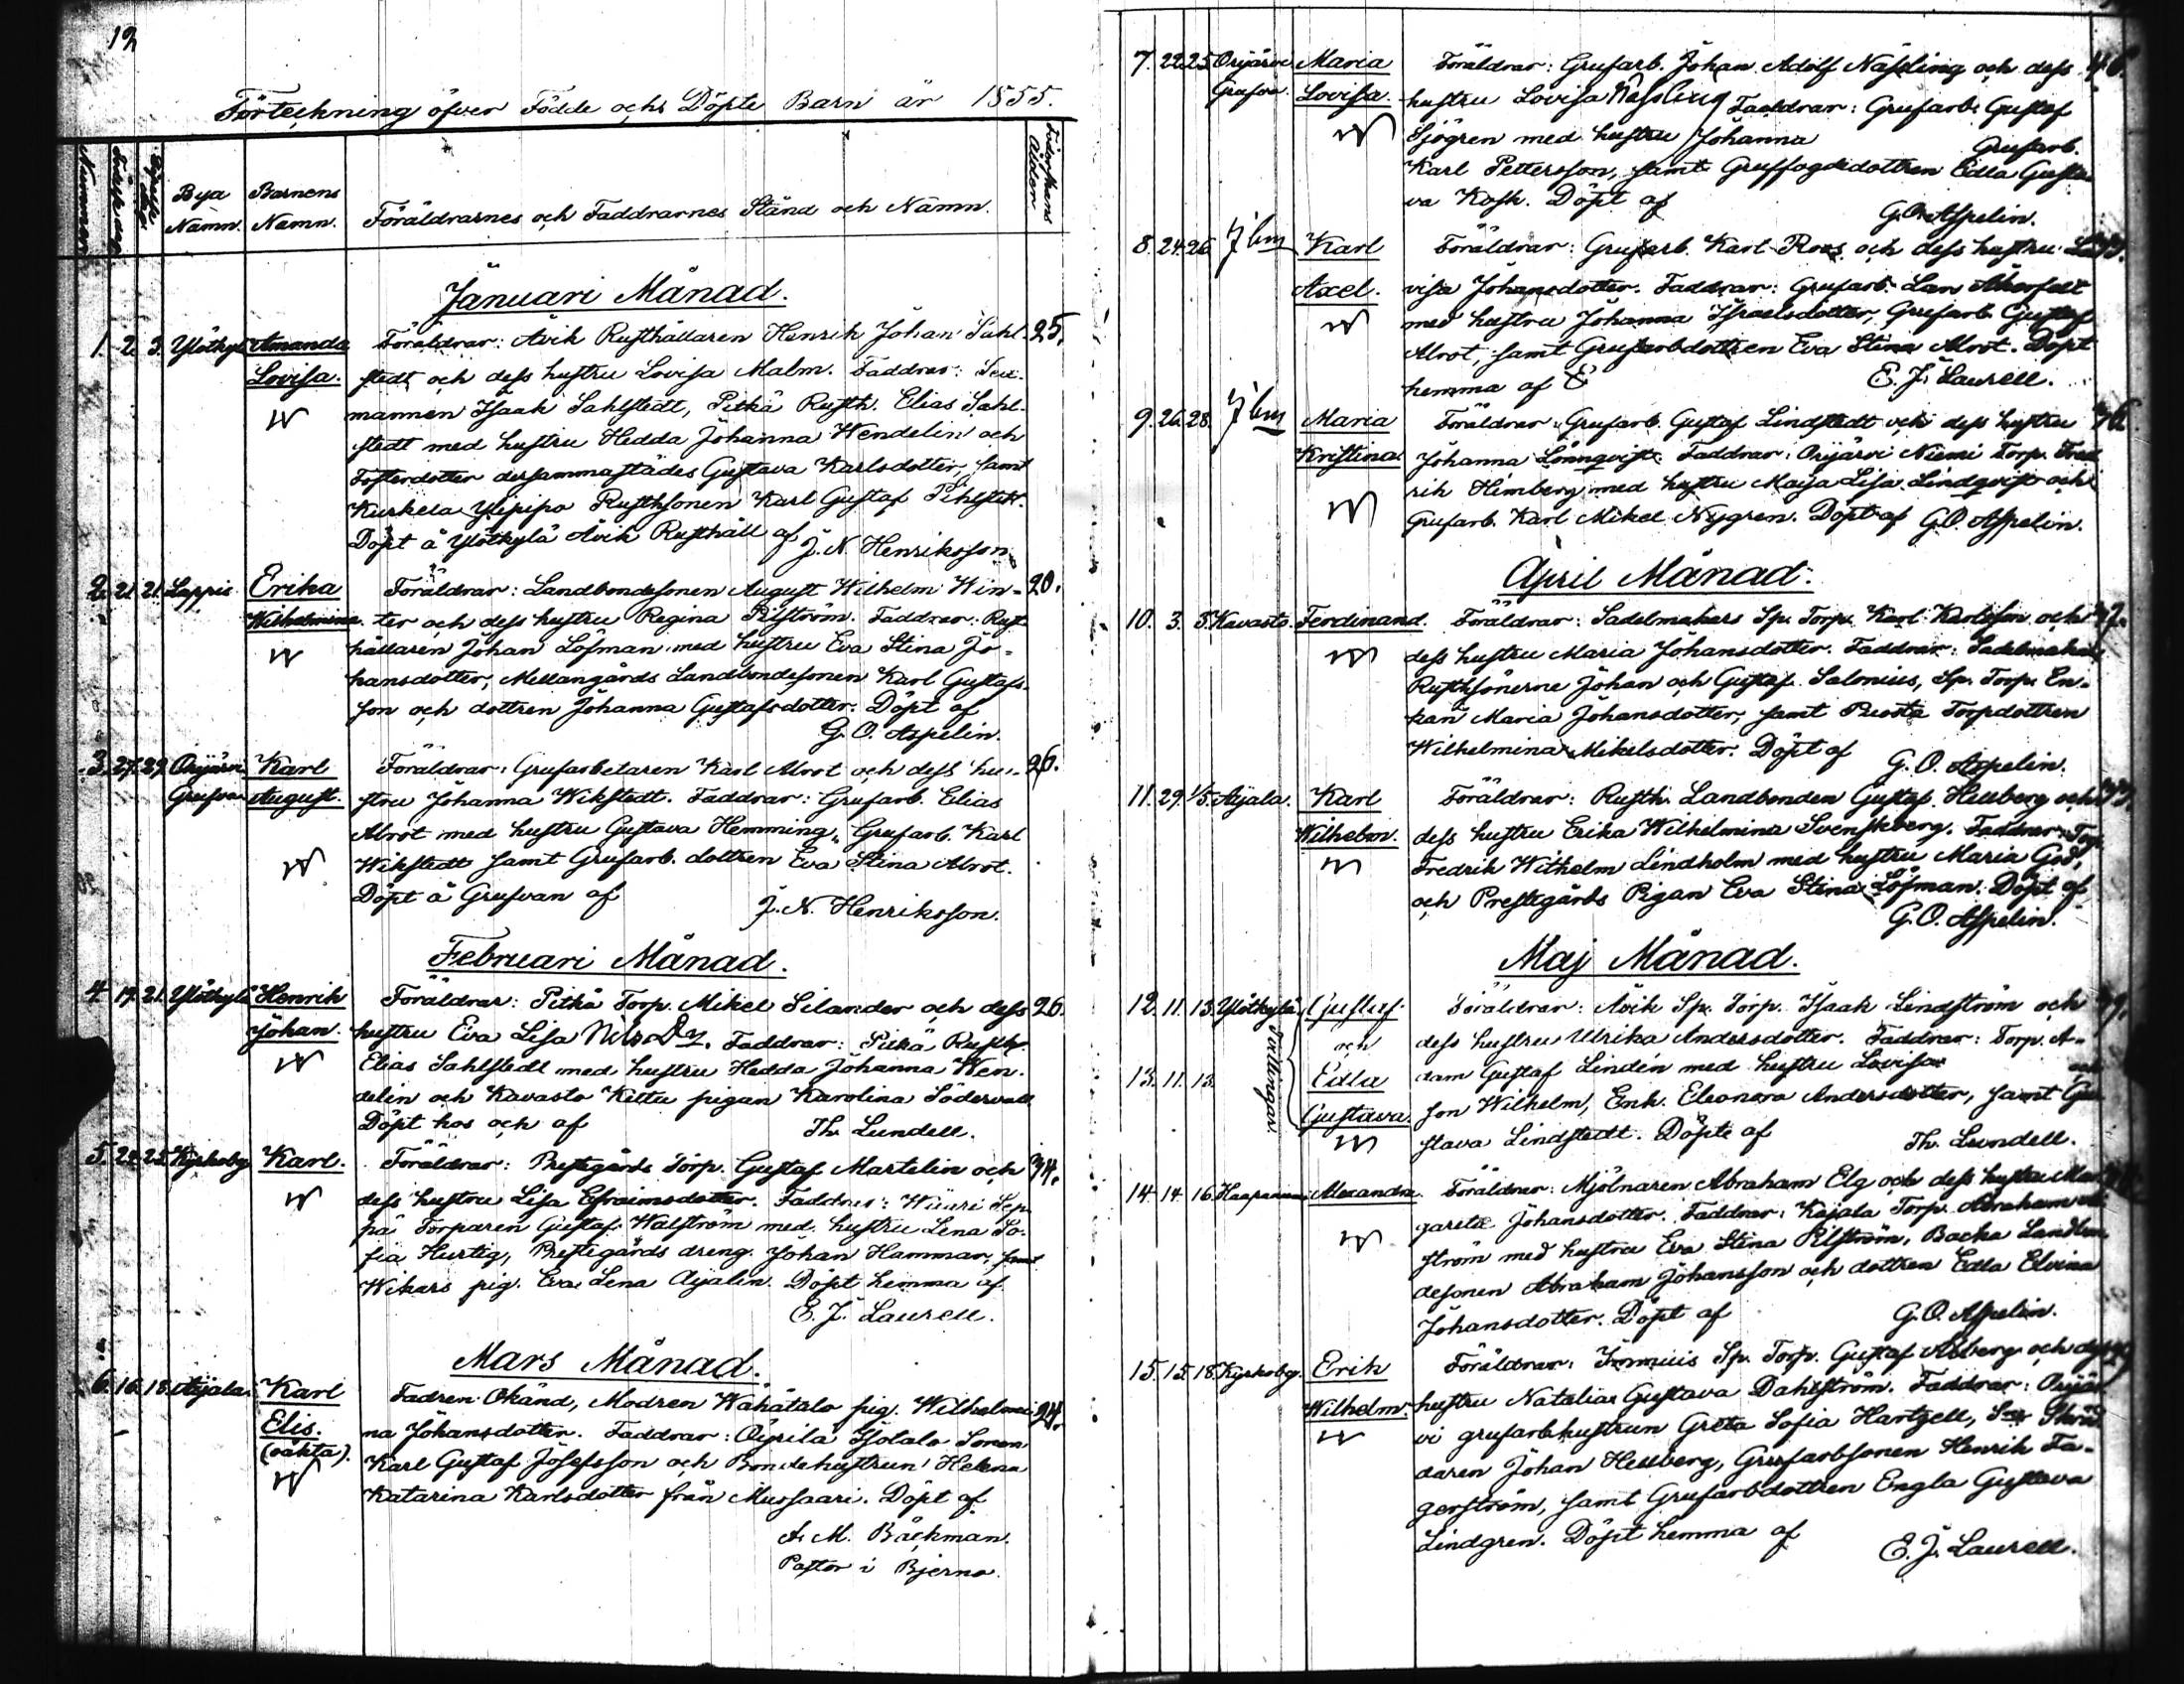 12
Förteckning öfver Födde och Döpte Barn år 1855.
Nummer
Födelse dag
Döpelse dag
Bya Namn.
Barnens Namn.
Föräldrarnes och Faddrarnes Stånd och Namn.
Ålder
Januari Månad.
1. 2. 3. Ylöskylä Amanda Föräldrar: Åvik Rusthållaren Henrik Johan Sahl- 25.
Lovisa. stedt och dess hustru Lovisa Malm. Faddrar: Sex-
mannen Isaak Sahlstedt, Pitkä Rusth. Elias Sahl-
stedt med hustru Hedda Johanna Wendelin och
Fosterdotter dersammastädes Gustava Karlsdotter, samt
Kurkela Yllpipo Rusthsonen Karl Gustaf Pihlstedt.
Döpt å Ylöskylä Åvik Rusthåll af J. N. Henriksson.
2. 21. 21. Lappis Erika Föräldrar: Landbondesonen August Wilhelm Win- 20.
Wilhelmina ter och dess hustru Regina Pilström. Faddrar: Rust-
hållaren Johan Löfman med hustru Eva Stina Jo-
hansdotter, Mellangårds Landbondesonen Karl Gustafs-
son och dottren Johanna Gustafsdotter. Döpt af
G. O. Aspelin.
3. 27. 29. Orijärvi Karl Föräldrar: Grufarbetaren Karl Alrot och dess hu- 26.
Grufva August. stru Johanna Wikstedt. Faddrar: Grufarb. Elias
Alrot med hustru Gustava Hemming, Grufarb. Karl
Wikstedt samt Grufarb. dottren Eva Stina Alrot.
Döpt å Grufvan af J. N. Henriksson.
Februari Månad.
4. 19. 21. Ylöskylä Henrik Föräldrar: Pitkä Torp. Mikel Silander och dess 26.
Johan. hustru Eva Lisa Nils Dr. Faddrar: Pitkä Rusth.
Elias Sahlstedt med hustru Hedda Johanna Wen-
delin och Kavasto Kittu pigan Karolina Södervall.
Döpt hos och af Th. Lundell.
5. 24. 25. Kyrkoby Karl. Föräldrar: Prestegårds Torp. Gustaf Martelin och 34.
dess hustru Lisa Efraimsdotter. Faddrar: Wiuari Sep-
pä Torparen Gustaf Walström med hustru Lena So-
fia Hurtig, Prestegårds dreng Johan Hammar, samt
Wikars pig. Eva Lena Ajalin. Döpt hemma af
E. J. Laurell.
Mars Månad.
6. 16. 18. Aijala. Karl Fadren Okänd, Modren Wahätalo pig. Wilhelmi- 24.
Elis. na Johansdotter. Faddrar: Isotalo Sonen
(oäkta). Karl Gustaf Josefsson och Bondehustrun Helena
Katarina Karlsdotter från Mussaari. Döpt af
A. M. Bäckman.
Pastor i Bjerno.
7. 22. 25. Orijärvi Maria Föräldrar: Grufarb. Johan Adolf Näsling och dess 46.
Grufva. Lovisa. hustru Lovisa Nässling Faddrar: Grufarb. Gustaf
Sjögren med hustru Johanna Grufarb.
Karl Pettersson, samt Gruffogdedottren Edla Gusta-
va Kosk. Döpt af G. O. Aspelin.
8. 24. 26. Karl Föräldrar: Grufarb. Karl Roos och dess hustru Lo-
Axel. visa Johansdotter. Faddrar: Grufarb. Lars Åkerfelt
med hustru Johanna Israelsdotter, Grufarb. Gustaf
Alrot, samt Grufarbdottren Eva Stina Alrot. Döpt
hemma af E. J. Laurell.
9. 26. 28. Maria Föräldrar: Grufarb. Gustaf Lindstedt och dess hustru
Kristina Johanna Lönnqvist. Faddrar: Orijärvi Niemi Torp. Fred-
rik Himberg med hustru Maija Lisa Lindqvist och
Grufarb. Karl Mikel Nygren. Döpt af G. O. Aspelin.
April Månad.
10. 3. 5. Kavasto. Ferdinand. Föräldrar: Sadelmakars Sp. Torp. Karl Karlsson och
dess hustru Maria Johansdotter. Faddrar: Sadelmakars
Rusthsönerne Johan och Gustaf Salonius, Sp. Torp. En-
kan Maria Johansdotter, samt Torpdottren
Wilhelmina Mikelsdotter. Döpt af G. O. Aspelin.
11. 29. 1/5. Aijala. Karl Föräldrar: Rusth. Landbonden Gustaf Hellberg och
Wilhelm. dess hustru Erika Wilhelmina Svenskberg. Faddrar: Torp.
Fredrik Wilhelm Lindholm med hustru Maria God,
och Prestegårds Pigan Eva Stina Löfman. Döpt af
G. O. Aspelin.
Maj Månad.
12. 11. 13. Ylöskylä. Gustaf Föräldrar: Åvik Sp. Torp. Isaak Lindström och
och dess hustru Ulrika Andersdotter. Faddrar: Torp. A-
13. 11. 13. Edla dam Gustaf Lindén med hustru Lovisa
Gustava. son Wilhelm, Enk. Eleonora Andersdotter, samt Gu-
stava Lindstedt. Döpte af Th. Lundell.
Tvillingar.
14. 14. 16. Alexandra. Föräldrar: Mjölnaren Abraham Elg och dess hustru Mar-
gareta Johansdotter. Faddrar: Kajala Torp. Abraham
ström med hustru Eva Stina Pilström, Backa Landbon-
desonen Abraham Johansson och dottren Edla Elvina
Johansdotter. Döpt af G. O. Aspelin.
15. 15. 18. Kyrkoby. Erik Föräldrar: Sp. Torp. Gustaf Åberg och dess
Wilhelm. hustru Natalia Gustava Dahlström. Faddrar: Orijär-
vi grufarbhustrun Greta Sofia Hartzell, Skräd-
daren Johan Hellberg, Grufarbsonen Henrik Fa-
gerström, samt Grufarbdottren Engla Gustava
Lindgren. Döpt hemma af E. J. Laurell.